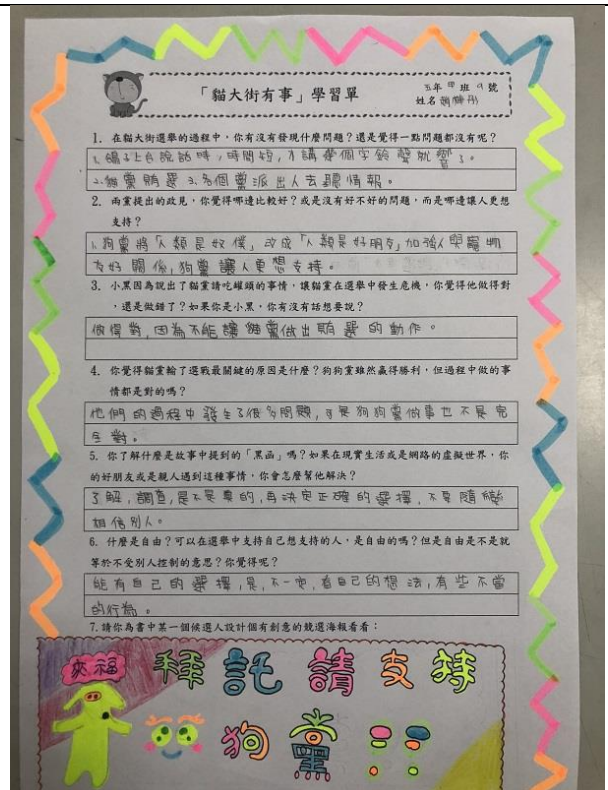 「貓大街有事」學習單
五年甲班9號
姓名
1. 在貓大街選舉的過程中,你有沒有發現什麼問題?還是覺得一點問題都沒有呢?
1.鴿子上台說話時,時間短,才講幾個字鈴聲就響了。
2.貓黨賄選 3.各個黨派出人去聽情報。
2. 兩黨提出的政見,你覺得哪邊比較好?或是沒有好不好的問題,而是哪邊讓人更想
支持?
1.狗黨將「人類是奴僕」改成「人類是好朋友」加強人與寵物
友好關係,狗黨讓人更想支持。
3. 小黑因為說出了貓黨請吃罐頭的事情,讓貓黨在選舉中發生危機,你覺得他做得對
,還是做錯了?如果你是小黑,你有沒有話想要說?
做得對,因為不能讓貓黨做出賄選的動作。
4. 你覺得貓黨輸了選戰最關鍵的原因是什麼?狗狗黨雖然贏得勝利,但過程中做的事
情都是對的嗎?
他們的過程中發生了很多問題,可是狗狗黨做事也不是完
全對。
5. 你了解什麼是故事中提到的「黑函」嗎?如果在現實生活或是網路的虛擬世界,你
的好朋友或是親人遇到這種事情,你會怎麼幫他解決?
了解,調查,是不是真的,再決定正確的選擇,不要隨便
相信別人。
6. 什麼是自由?可以在選舉中支持自己想支持的人,是自由的嗎?但是自由是不是就
等於不受別人控制的意思?你覺得呢?
能有自己的選擇,是,不一定,看自己的想法,有些不當
的行為。
7.請你為書中某一個候選人設計個有創意的競選海報看看:
來福 拜託請支持
狗黨!!